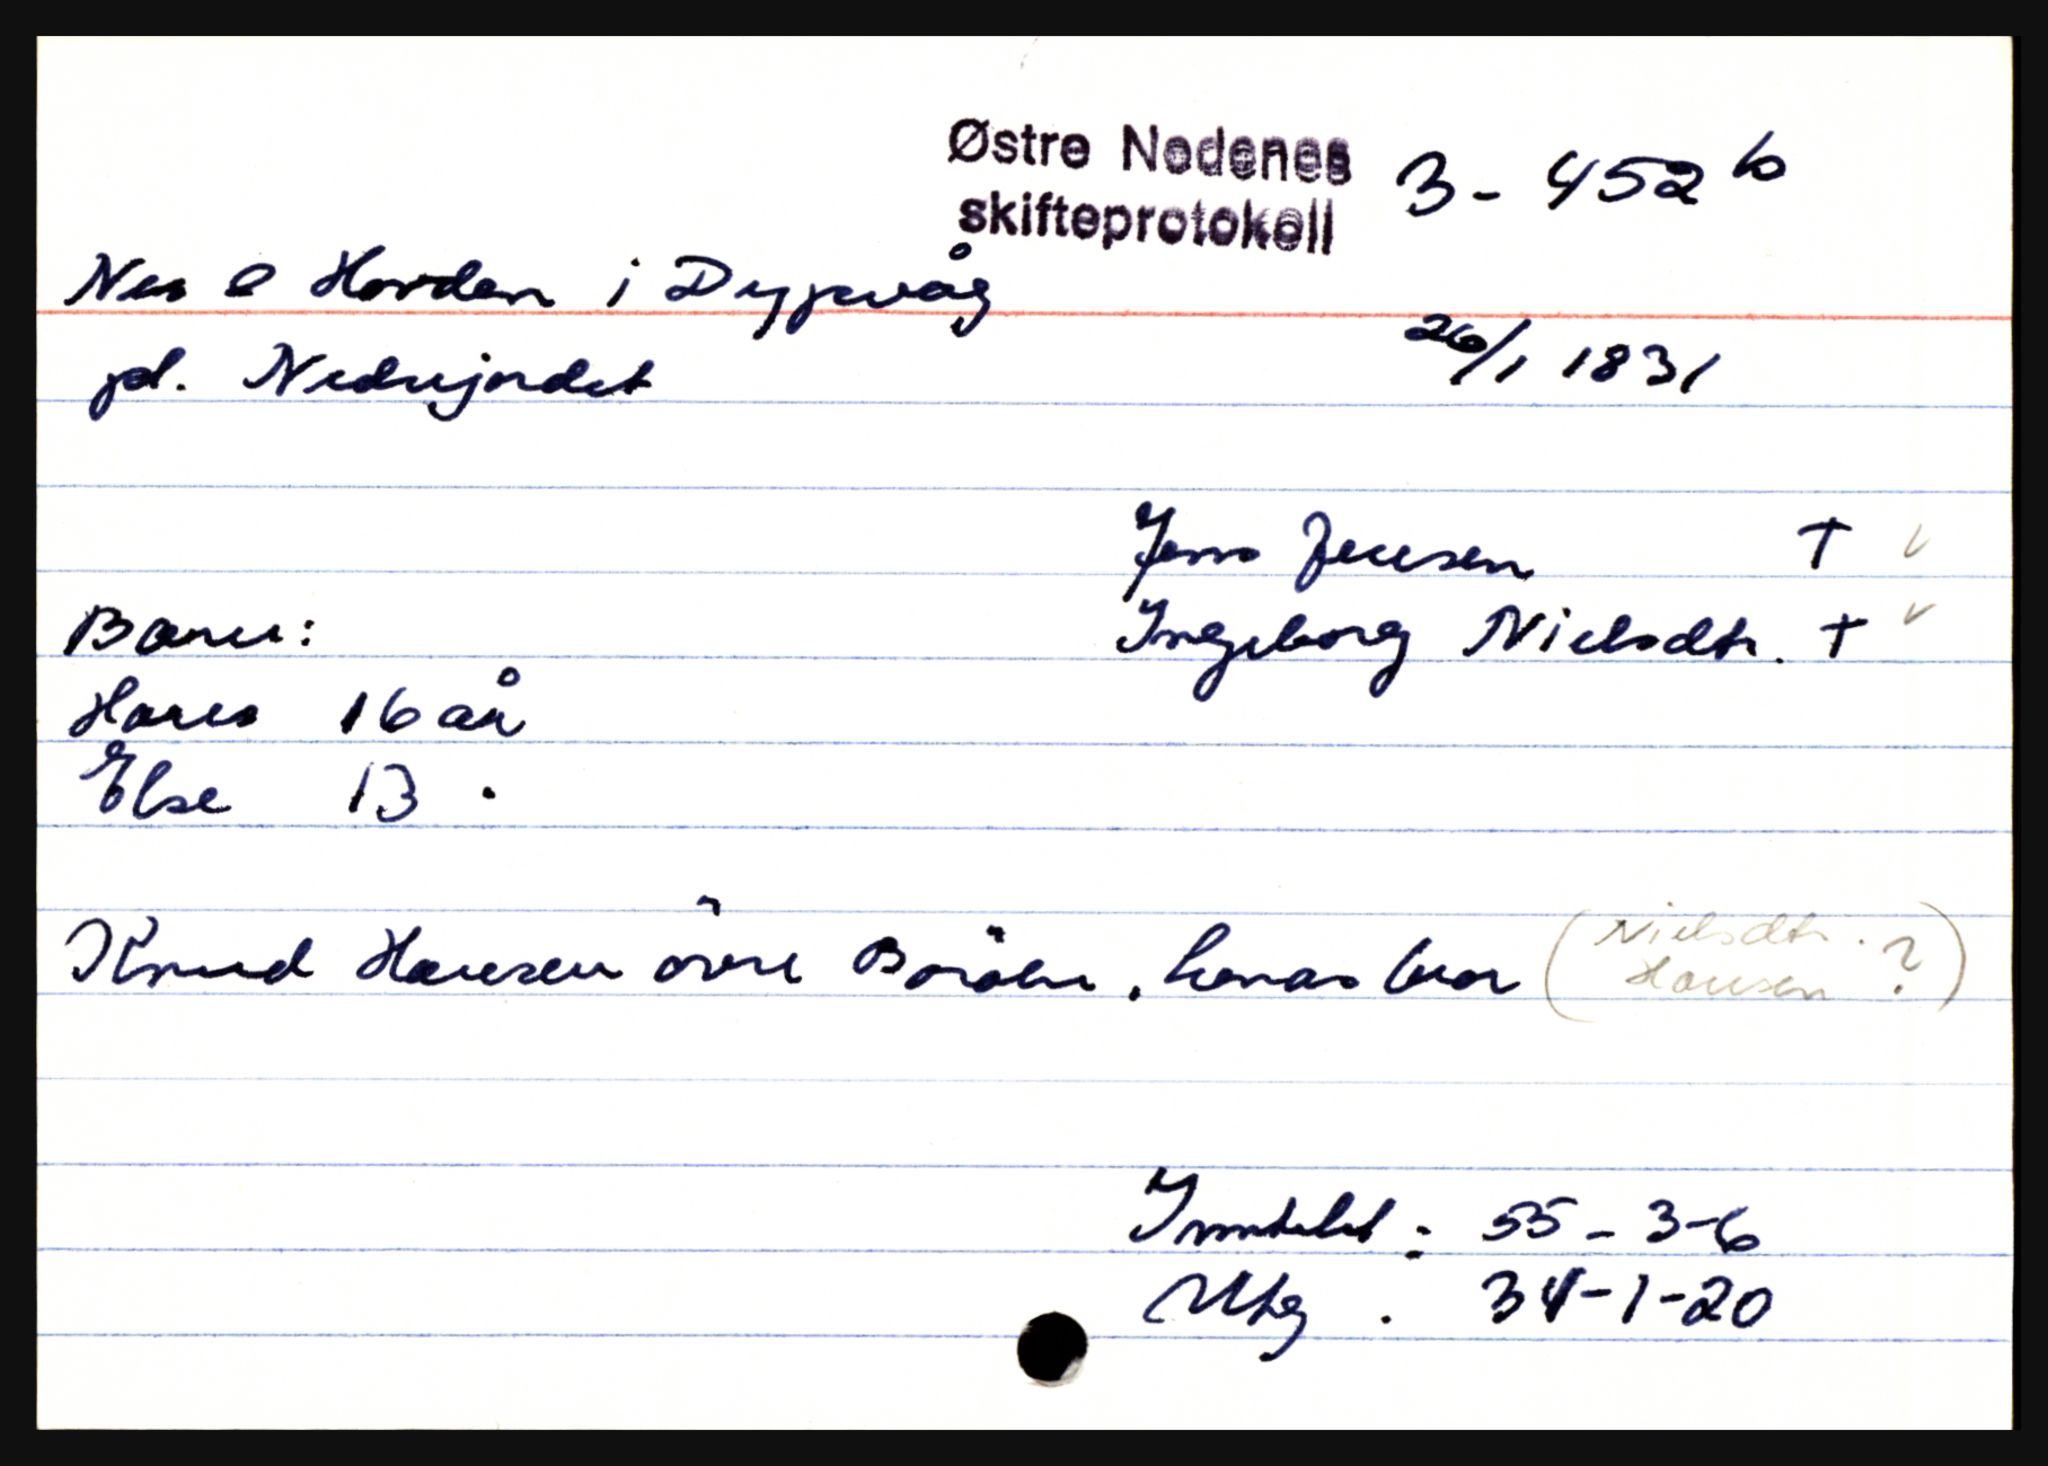 Østre Nedenes
skifteprotokoll 3 - 452 b
Nes e Hovden i Dypvåg
pl. Nedrejordet 26/1 1831
Jens Jensen † v
Barn: Ingeborg Nielsdtr. † v
Hans 16 år
Else 13 "
Knud Hansen øvre , hennes bror (Nielsdtr. Hansen ?)
Inntekt : 55 - 3 - 6
Utg . 34 - 1 - 20